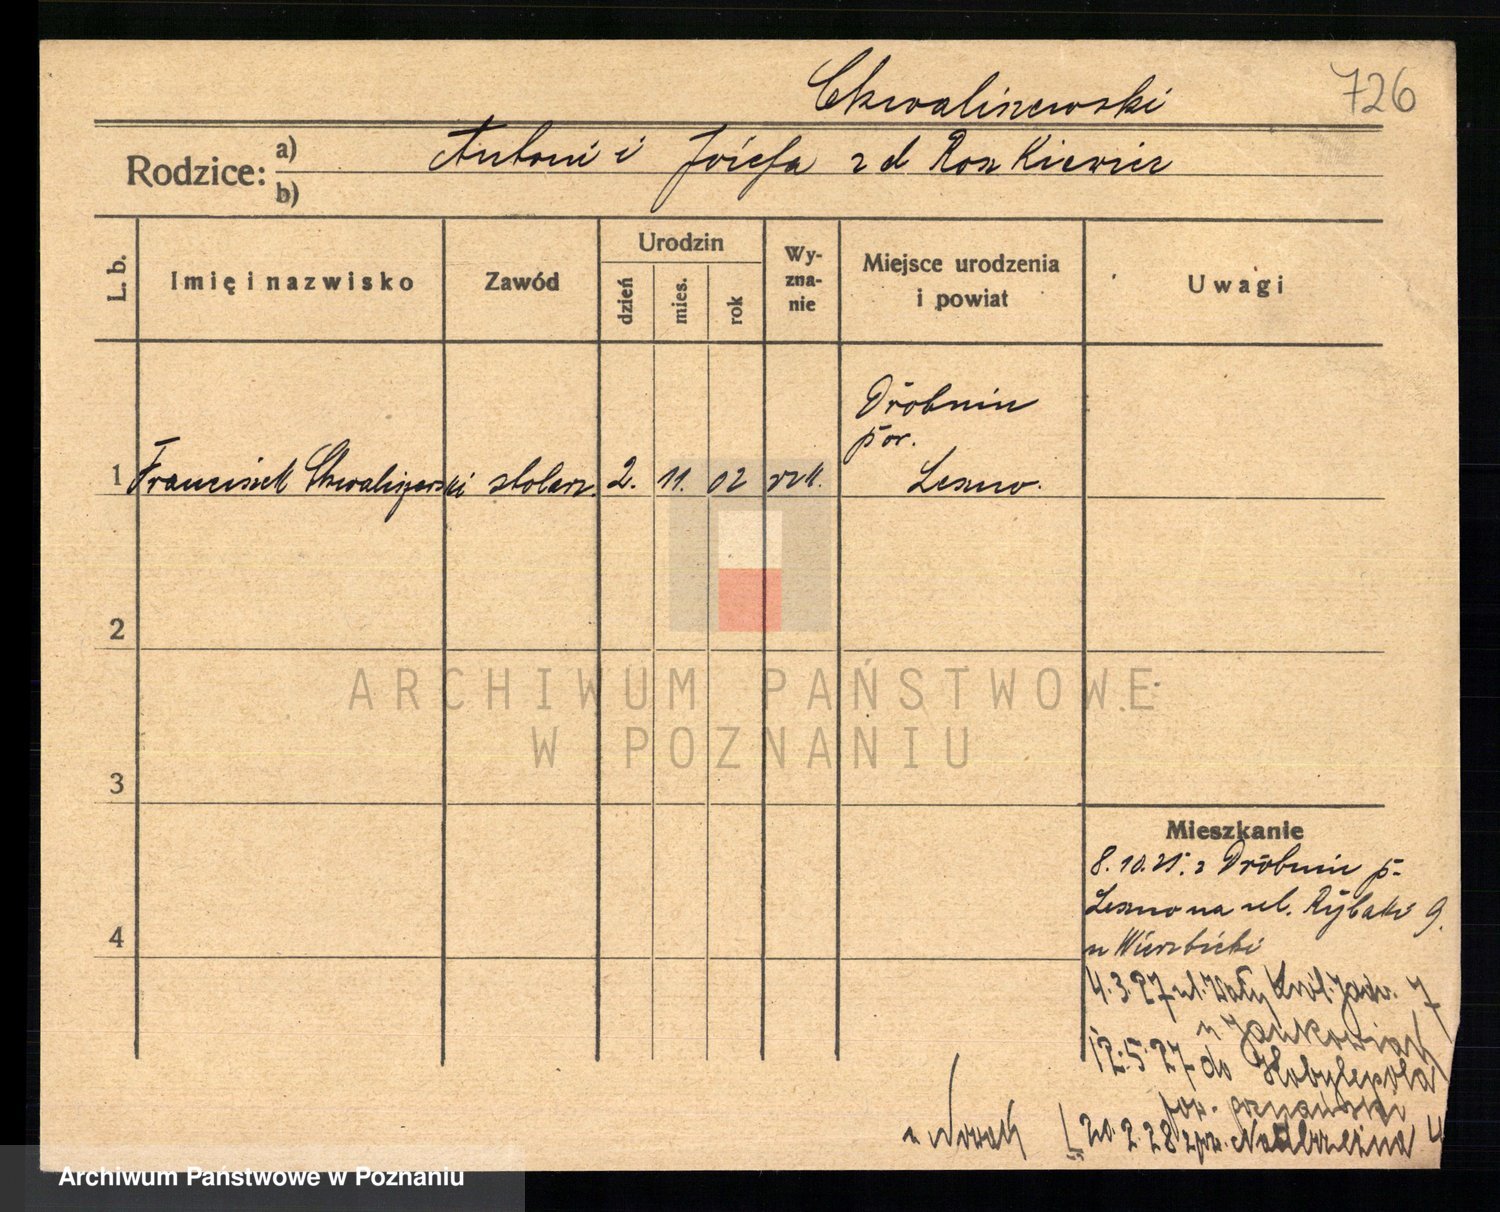 726
Chwaliszewski
Rodzice: a)
b)
Antoni i Józefa z d Roszkiewicz
L. b.
Imię i nazwisko
Zawód
Urodzin
dzień
mies.
rok
Wy-
zna-
nie
Miejsce urodzenia
i powiat
Uwagi
1 Franciszek Chwaliszewski stolarz. 2. 11. 02 rzk.
Drobnin
pow.
Leszno.
2
3
4
ARCHIWUM PAŃSTWOWE
W POZNANIU
Mieszkanie
8.10.25. z Drobnin p.
Leszno na ul. Rybaki 9.
u Wierzbicki
4.3.27 ul. Wały Król. Jadw. 7
u Jankowiak
12.5.27 do Kobylepola
pow. poznański
20.2.28 Nadbrzeżna 4
u Nowak
Archiwum Państwowe w Poznaniu